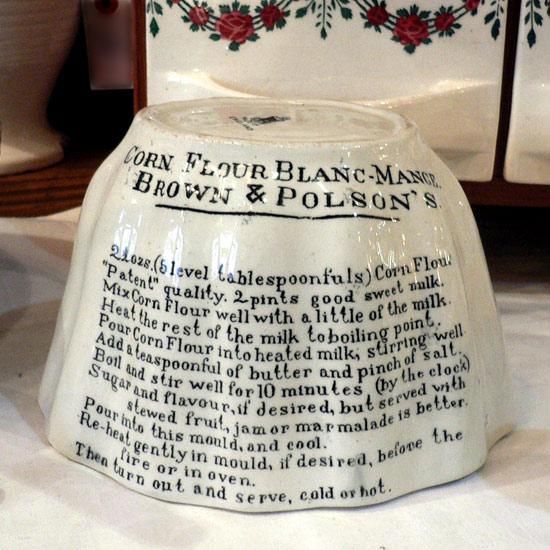 CORN FLOUR BLANC-MANGE.
BROWN & POLSON'S
2½ozs. (5 level tablespoonfuls) Corn Flour
"Patent" quality. 2 pints good sweet milk.
Mix Corn Flour well with a little of the milk.
Heat the rest of the milk to boiling point.
Pour Corn Flour into heated milk, stirring well.
Add a teaspoonful of butter and pinch of salt.
Boil and stir well for 10 minutes (by the clock)
Sugar and flavour, if desired, but served with
stewed fruit, jam or marmalade is better.
Pour into this mould, and cool.
Re-heat gently in mould, if desired, before the
fire or in oven.
Then turn out and serve, cold or hot.